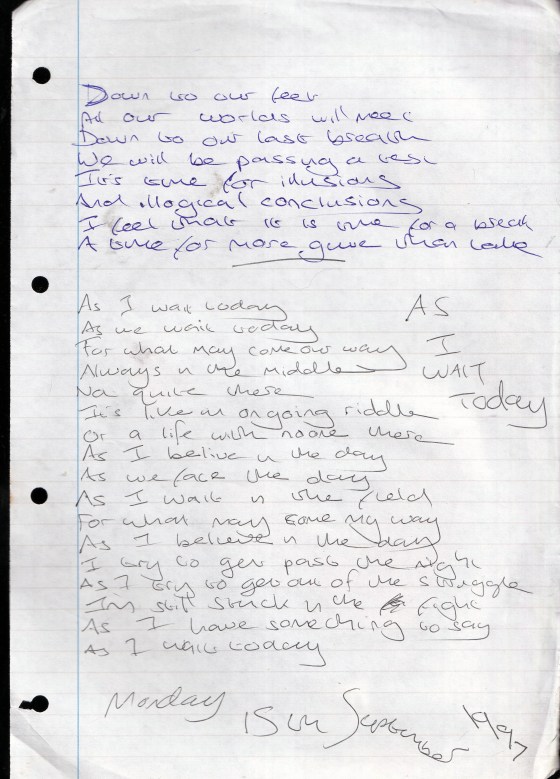 Down to our feet
All our worlds will meet
Down to our last breath
We will be passing a test
It's time for illusions
And illogical conclusions
I feel that it is time for a break
A time for more give than take
As I wait today
As we wait today
For what may come our way
Always in the middle
Not quite there
It's like an ongoing riddle
Or a life with noone there
As I belive in the day
As we face the day
As I wait in the field
For what may come my way
As I believe in the day
I try to get past the night
As I try to get out of the struggle
I'm still stuck in the fight
As I have something to say
As I wait today
AS
I
WAIT
Today
Monday 15th September 1997